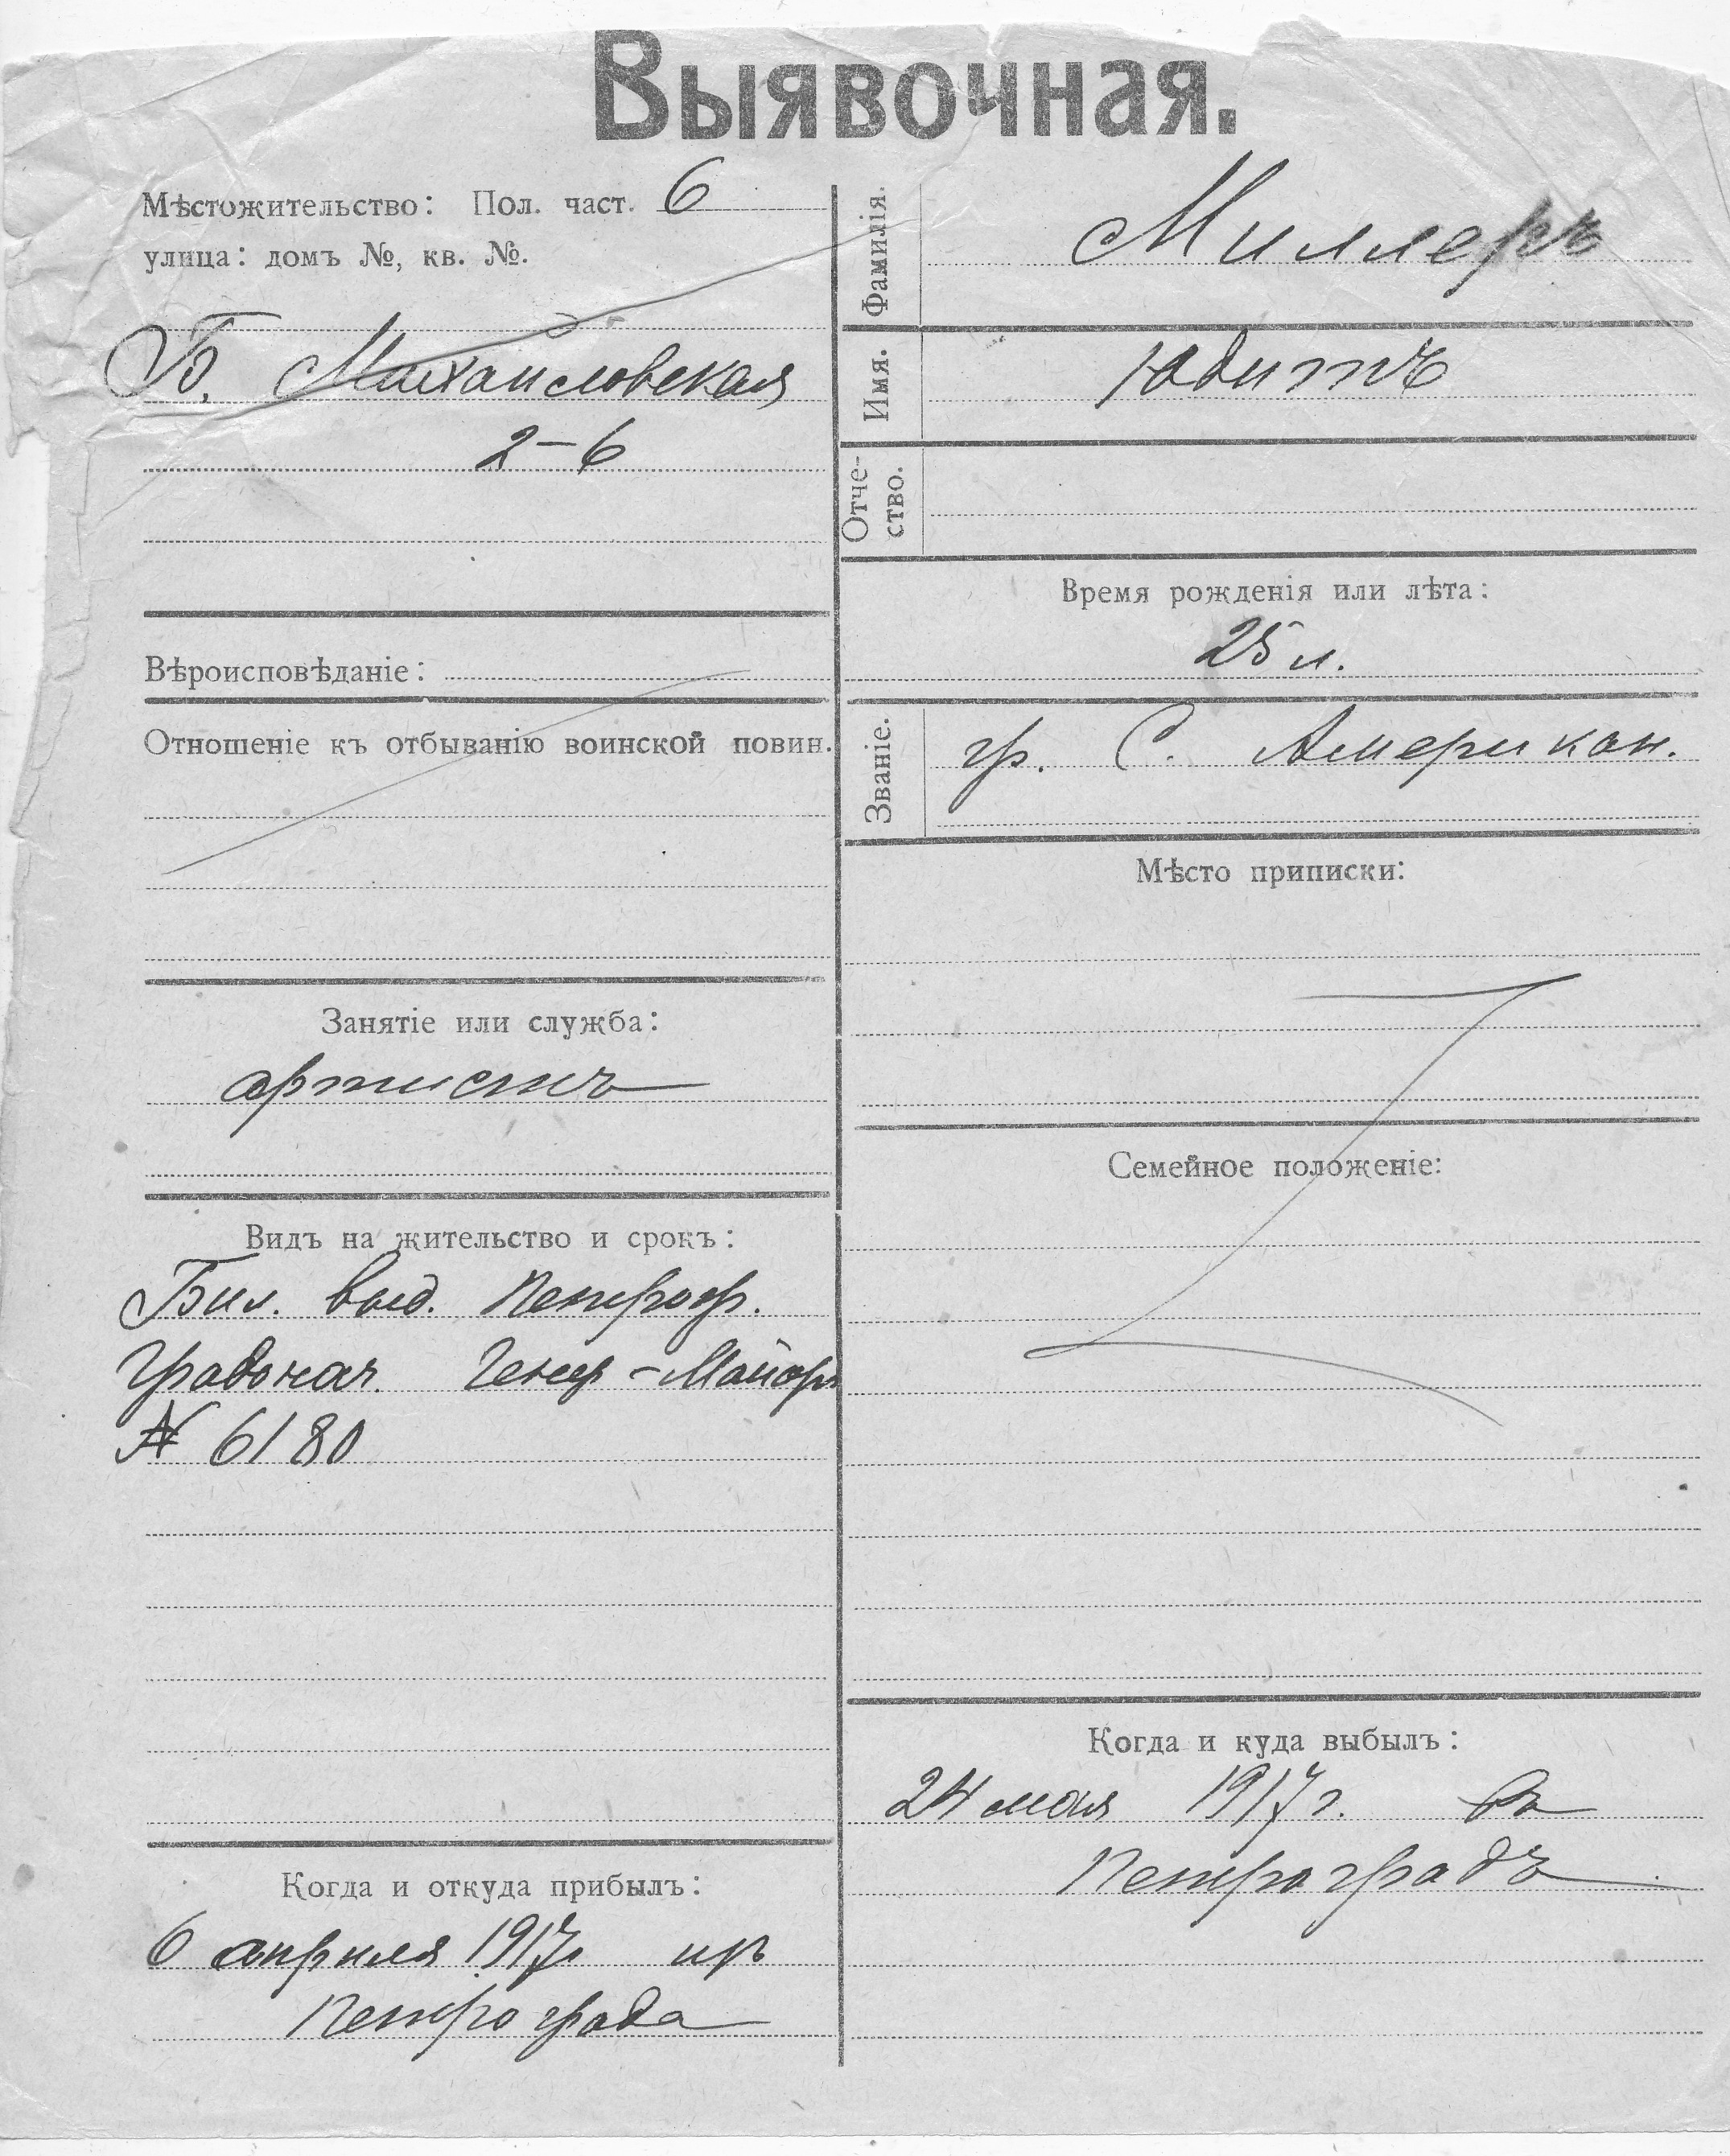 Выявочная.
Мѣстожительство: Пол. част. 6
улица: домъ №, кв. №.
Б. Михайловская
2-6
Вѣроисповѣданіе:
Отношеніе къ отбыванію воинской повин.
Занятіе или служба:
артистъ
Видъ на жительство и срокъ:
Бил. выд. Петрогр.
Градонач. Генер-Майоръ
№ 6180
Когда и откуда прибылъ:
6 апрѣля 1917г. изъ
Петрограда
Фамилія.
Миллеръ
Имя.
Юдитъ
Отче-
ство.
Время рожденія или лѣта:
25 л.
Званіе.
гр. С. Американ.
Мѣсто приписки:
Семейное положеніе:
Когда и куда выбылъ:
24 мая 1917 г. въ
Петроградъ